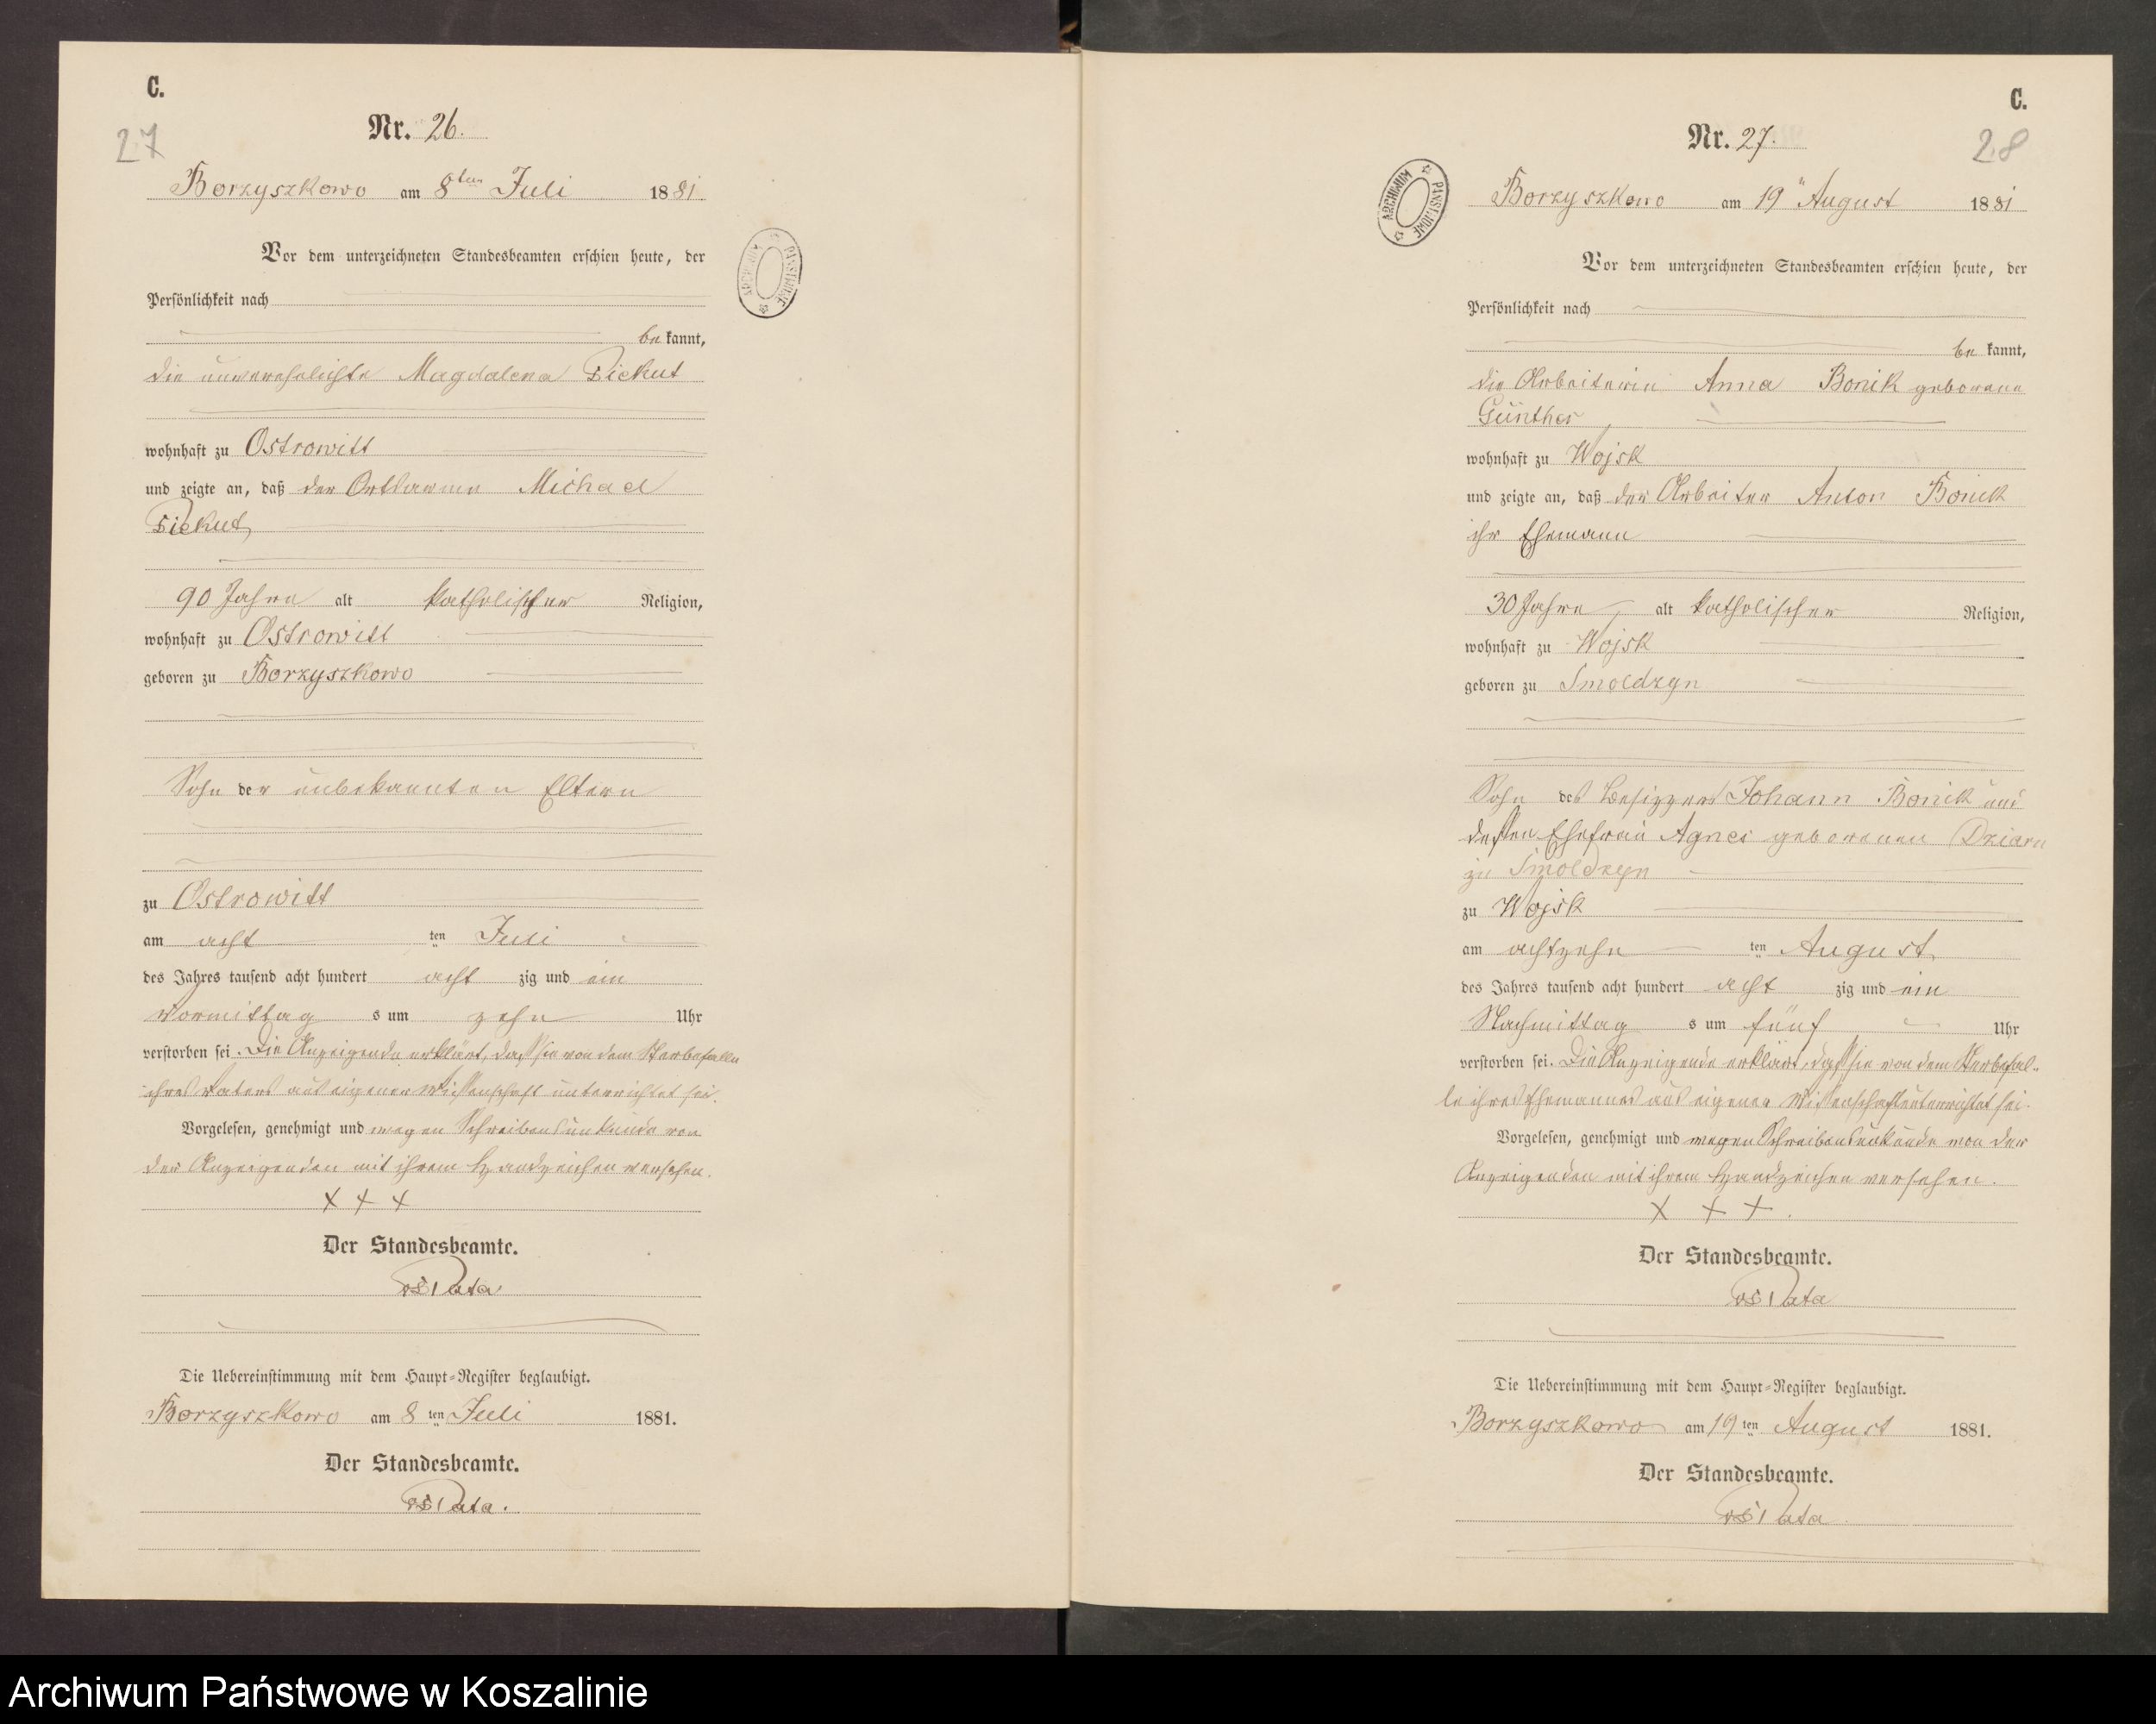 C.
27
Nr. 26.
Borzyszkowo am 8ten Juli 1881
Vor dem unterzeichneten Standesbeamten erschien heute, der
Persönlichkeit nach
be kannt,
die unverehelichte Magdalena Piekut
wohnhaft zu Ostrowitt
und zeigte an, daß der Ortsarme Michael
Piekut,
90 Jahre alt katholischer Religion,
wohnhaft zu Ostrowitt
geboren zu Borzyszkowo
Sohn der unbekannten Eltern
zu Ostrowitt
am acht ten Juli
des Jahres tausend acht hundert acht zig und ein
Vormittag s um zehn Uhr
verstorben sei. Die Anzeigende erklärt, daß sie von dem Sterbefalle
ihres Vaters aus eigener Wissenschaft unterrichtet sei.
Vorgelesen, genehmigt und wegen Schreibensunkunde von
der Anzeigenden mit ihrem Handzeichen versehen.
+ + +
Der Standesbeamte.
Pata
Die Uebereinstimmung mit dem Haupt-Register beglaubigt.
Borzyszkowo am 8 ten Juli 1881.
Der Standesbeamte.
Pata.
ARCHIWUM PAŃSTWOWE
C.
28
Nr. 27.
Borzyszkowo am 19" August 1881
Vor dem unterzeichneten Standesbeamten erschien heute, der
Persönlichkeit nach
be kannt,
die Arbeiterin Anna Bonik geborene
Günther
wohnhaft zu Wojsk
und zeigte an, daß der Arbeiter Anton Bonik
ihr Ehemann
30 Jahre alt katholischer Religion,
wohnhaft zu Wojsk
geboren zu Smoldzyn
Sohn des Besitzers Johann Bonik und
dessen Ehefrau Agnes geborenen
zu Smoldzyn
zu Wojsk
am achtzehn ten August
des Jahres tausend acht hundert acht zig und ein
Nachmittag s um fünf Uhr
verstorben sei. Die Anzeigende erklärt, daß sie von dem Sterbefal-
le ihres Ehemannes aus eigener Wissenschaft unterrichtet sei.
Vorgelesen, genehmigt und wegen Schreibensunkunde von der
Anzeigenden mit ihrem Handzeichen versehen.
+ + +.
Der Standesbeamte.
Pata
Die Uebereinstimmung mit dem Haupt-Register beglaubigt.
Borzyszkowo am 19 ten August 1881.
Der Standesbeamte.
Pata
ARCHIWUM PAŃSTWOWE
Archiwum Państwowe w Koszalinie